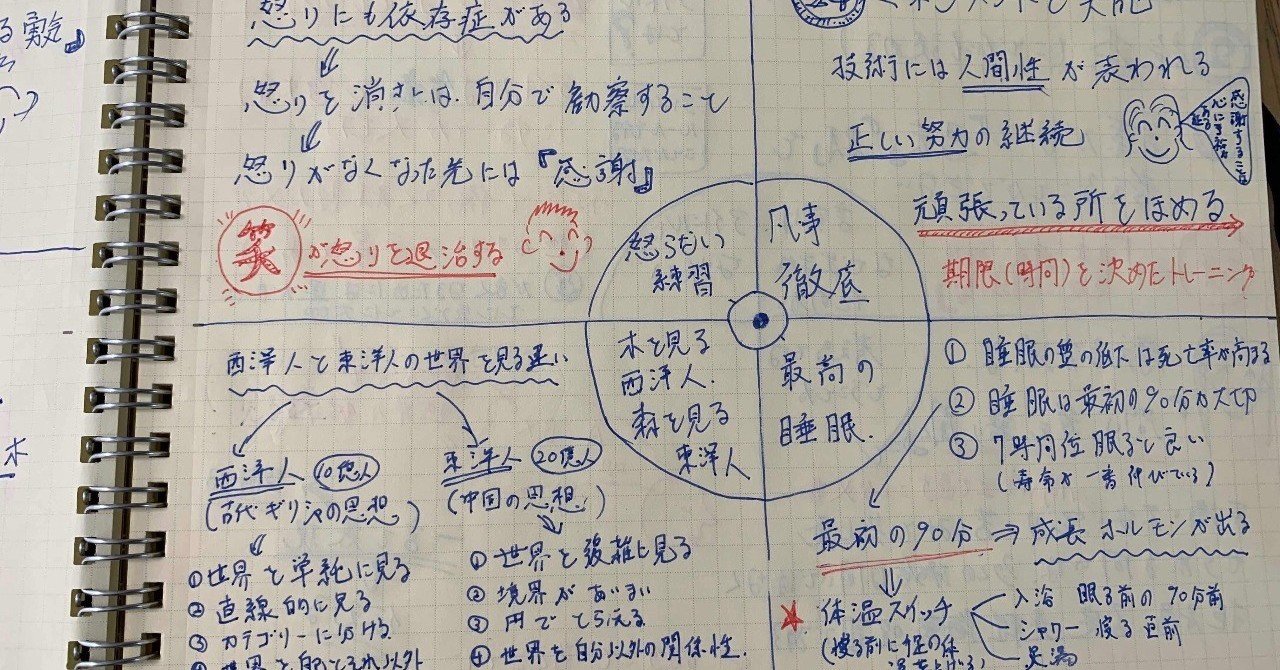 怒りにも依存症がある
怒りを消すには、自分で観察すること
怒りがなくなった先には『感謝』
笑が怒りを退治する
技術には人間性が表われる
正しい努力の継続
感謝することは
頑張っている所をほめる
期限(時間)を決めたトレーニング
怒らない
練習
凡事
徹底
木を見る
西洋人.
森を見る
東洋人
最高の
睡眠.
西洋人と東洋人の世界を見る違い
西洋人 10億人
(古代ギリシャの思想)
①世界を単純に見る
②直線的に見る
③カテゴリーに分ける
東洋人 20億人
(中国の思想)
①世界を複雑に見る
②境界があいまい
③円でとらえる
④世界を自分以外の関係性.
①睡眠の量の低下は死亡率が高まる
②睡眠は最初の90分が大切
③7時間位眠ると良い
(寿命が一番伸びている)
最初の90分⇒成長ホルモンが出る
★体温スイッチ
入浴 眠る前の90分前
シャワー 寝る直前
足湯
る勇気』
木